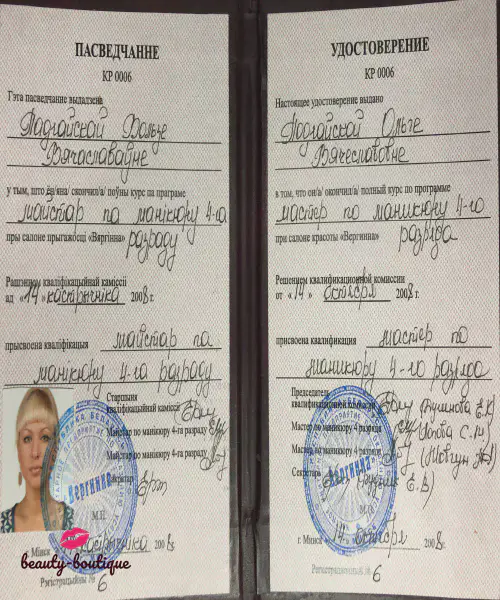 ПАСВЕДЧАННЕ
КР 0006
Гэта пасведчанне выдадзена
Падгайскай Вользе
Вячаславаўне
у тым, што ён/яна/ скончыл/а/ поўны курс па праграме
майстар па манікюру 4-га
пры салоне прыгажосці «Вяргінна» разраду
Рашэннем кваліфікацыйнай камісіі
ад «14» кастрычніка 2008 г.
прысвоена кваліфікацыя майстар па
манікюру 4-га разраду
Старшыня
кваліфікацыйнай камісіі
Майстар по манікюру 4-га разраду
Майстар па манікюру 4-га разраду
Сакратар
Вергинна
М.П.
г. Мінск кастрычніка 2008 г.
Рэгістрацыйны № 6
beauty-boutique
УДОСТОВЕРЕНИЕ
КР 0006
Настоящее удостоверение выдано
Падгайской Ольге
Вячеславовне
в том, что он/а/ окончил/а/ полный курс по программе
мастер по маникюру 4-го
при салоне красоты «Вергинна» разряда
Решением квалификационной комиссии
от «14» октября 2008 г.
присвоена квалификация мастер по
маникюру 4-го разряда
Председатель
квалификационной комиссии
Мастер по маникюру 4 разряда (Попова С.М)
Мастер по маникюру 4 разряда
Секретарь
Вергинна
М.П.
г. Минск 14 октября 2008 г.
Регистрационный № 6